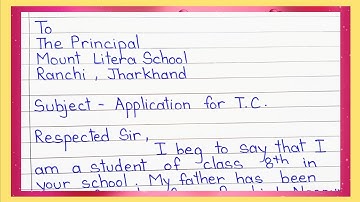 To
The Principal
Mount Litera School
Ranchi, Jharkhand
Subject - Application for T.C.
Respected Sir,
I beg to say that I
am a student of class 8th in
your school. My father has been